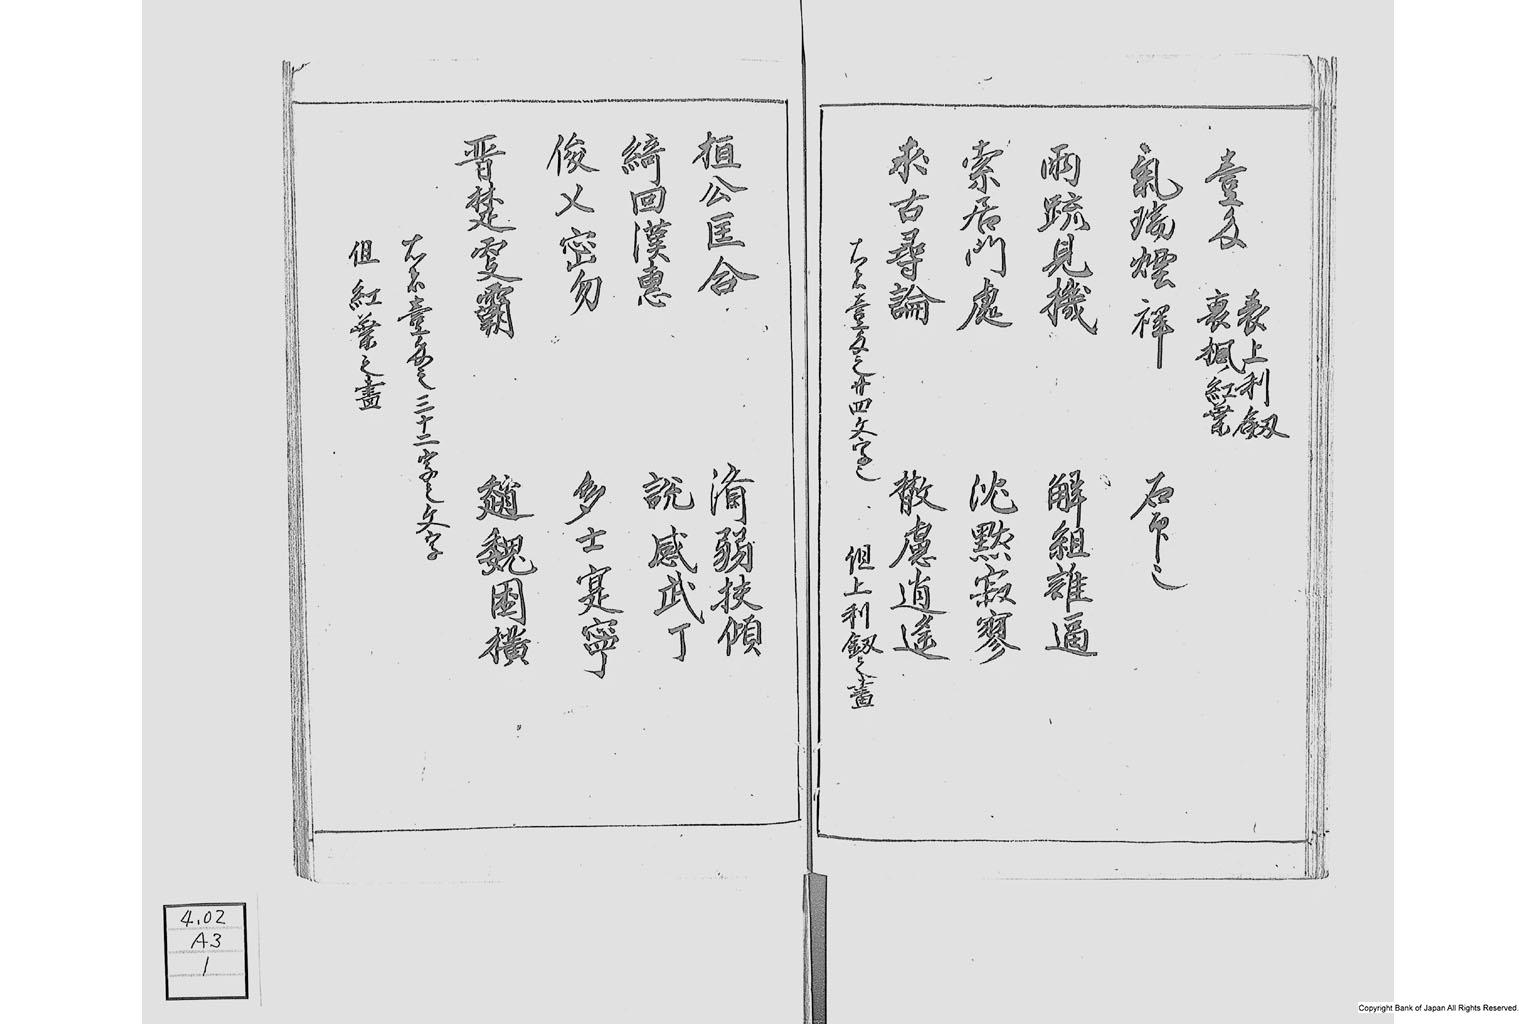 壹匁
表上利劔
裏楓紅葉
氣瑞煙祥
石印之
兩疏見機
解組誰逼
索居閑處
沈默寂寥
求古尋論
散慮逍遙
右者壹匁之廿四文字之
但上利劔之畫
桓公匡合
濟弱扶傾
綺回漢惠
說感武丁
俊乂密勿
多士寔寧
晋楚更霸
趙魏困橫
右者壹匁之三十二字之文字
但紅葉之畫
4.02
A3
1
Copyright Bank of Japan All Rights Reserved.